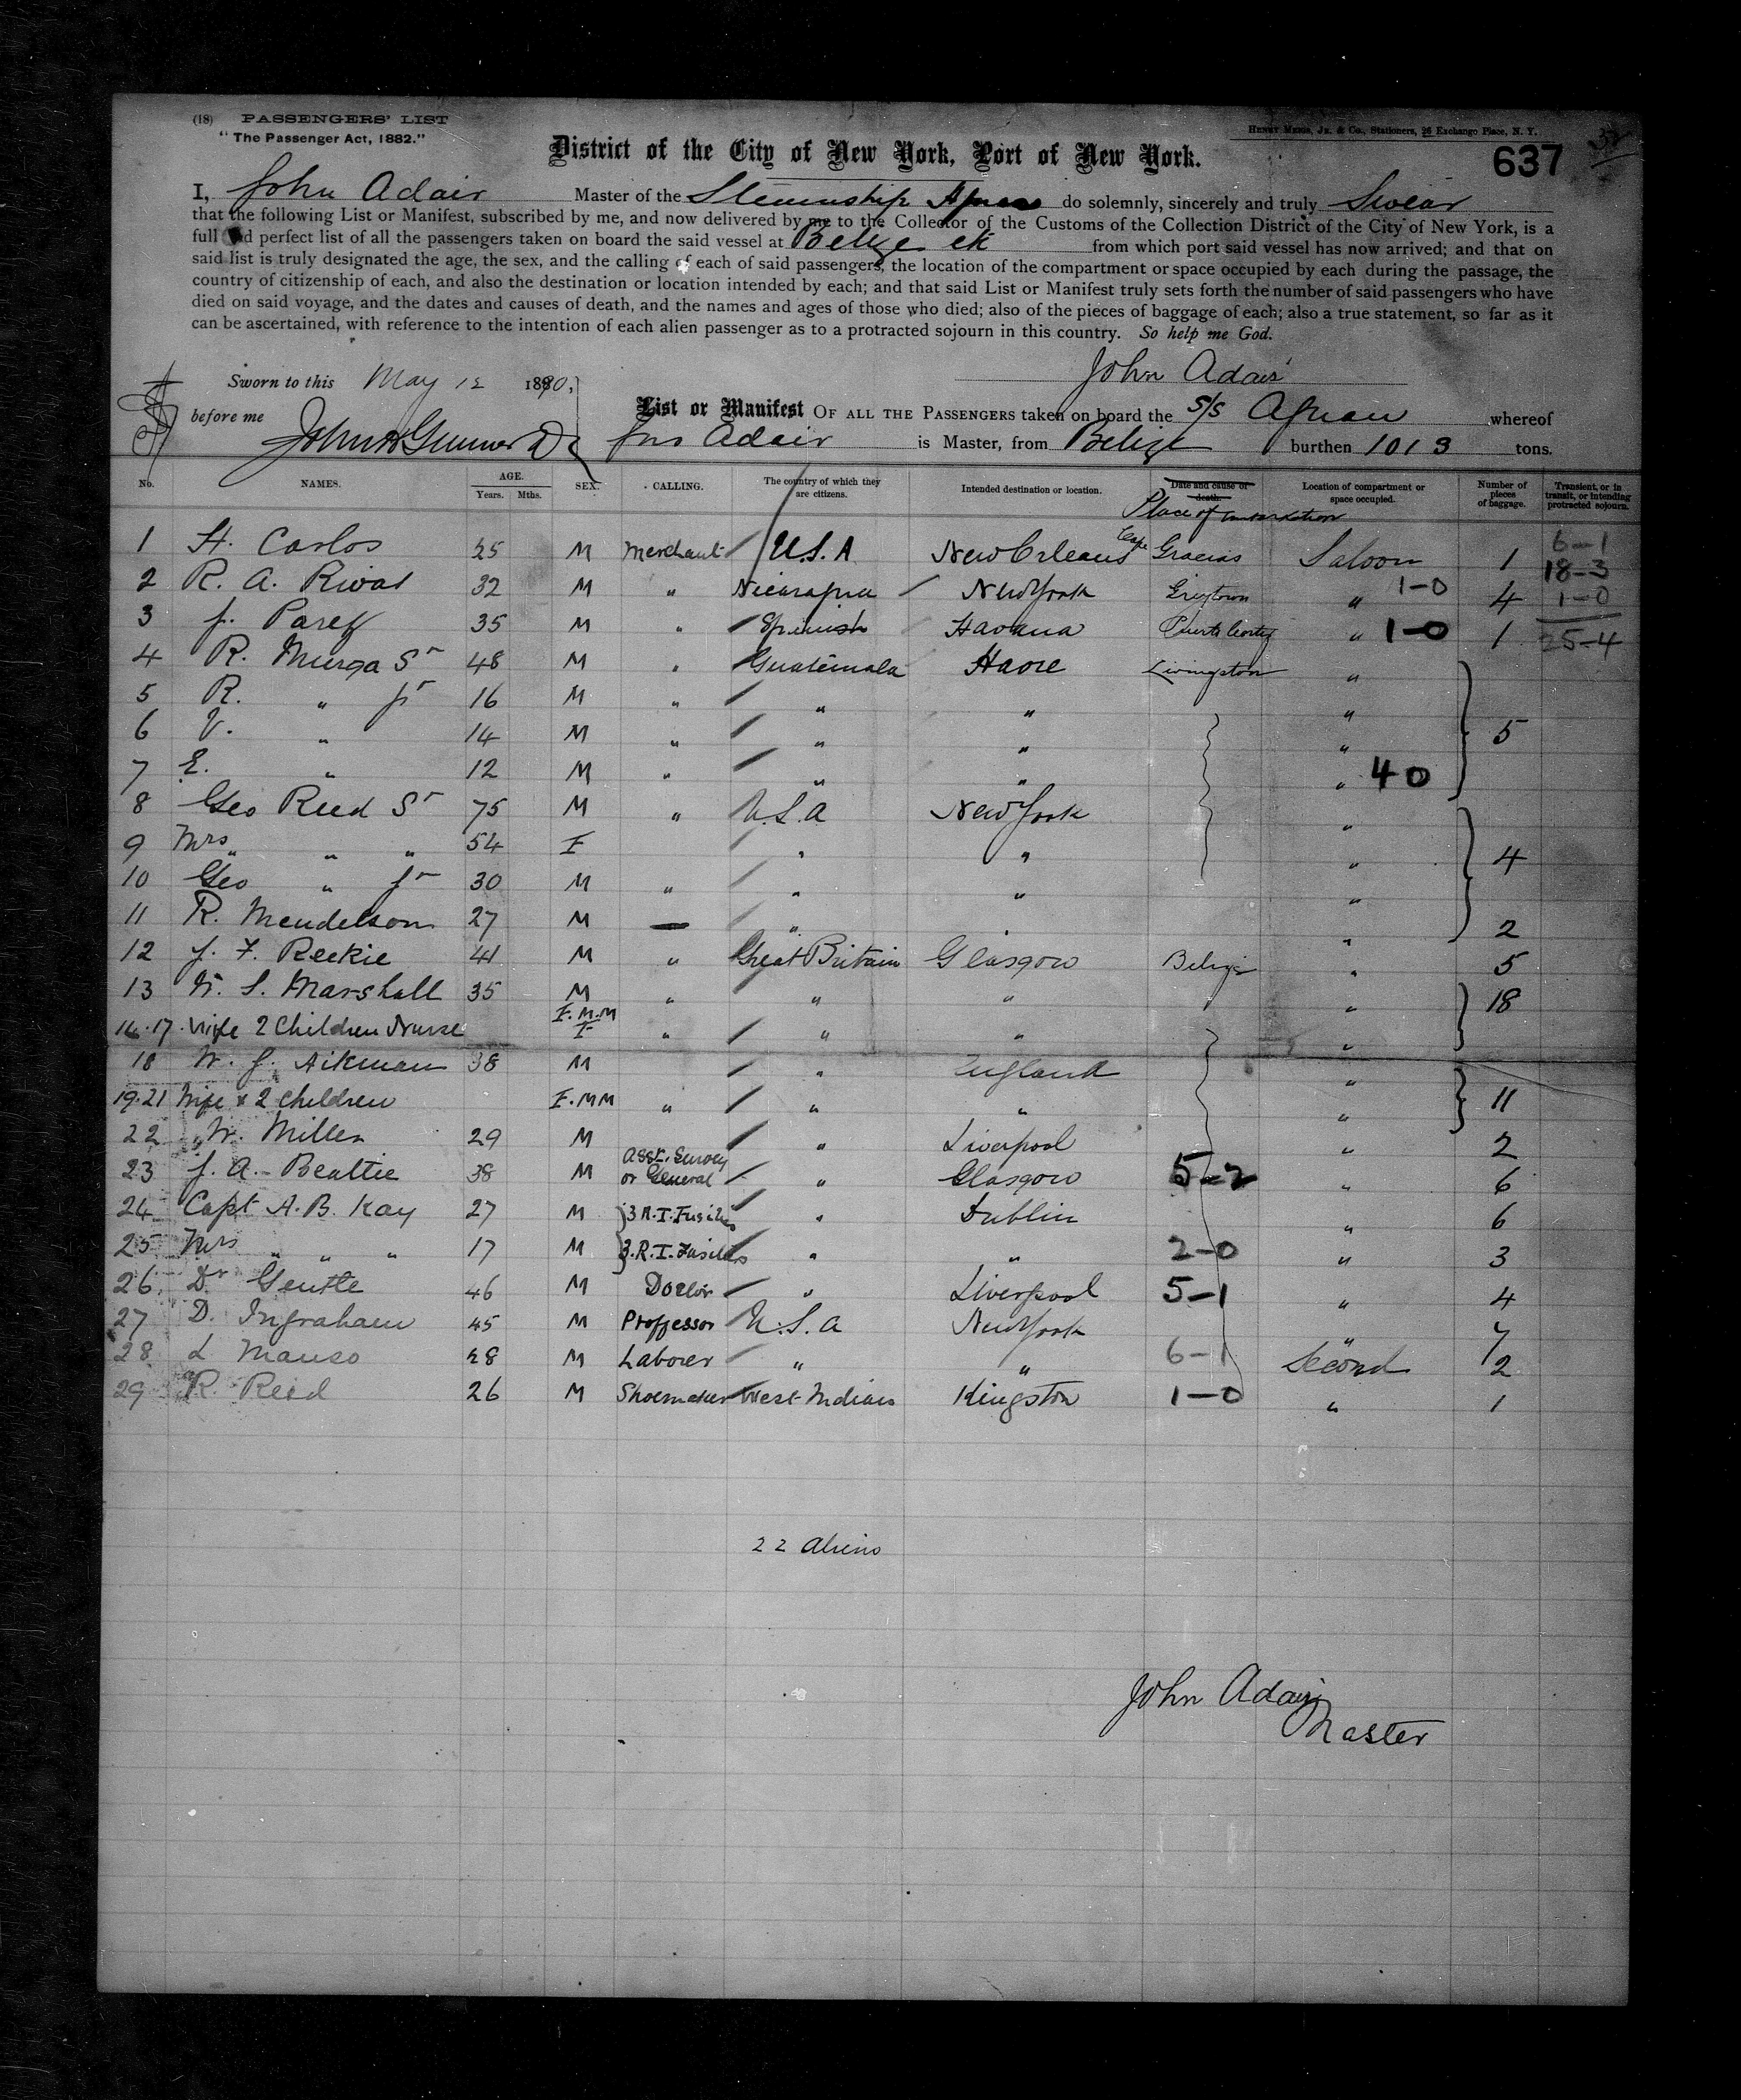 (18) PASSENGERS' LIST
"The Passenger Act, 1882."
HENRY MEIGS, JR. & CO., Stationers, 26 Exchange Place, N. Y.
District of the City of New York, Port of New York.
637
I, John Adair Master of the Steamship do solemnly, sincerely and truly Swear
that the following List or Manifest, subscribed by me, and now delivered by me to the Collector of the Customs of the Collection District of the City of New York, is a
full and perfect list of all the passengers taken on board the said vessel at Belize from which port said vessel has now arrived; and that on
said list is truly designated the age, the sex, and the calling of each of said passengers, the location of the compartment or space occupied by each during the passage, the
country of citizenship of each, and also the destination or location intended by each; and that said List or Manifest truly sets forth the number of said passengers who have
died on said voyage, and the dates and causes of death, and the names and ages of those who died; also of the pieces of baggage of each; also a true statement, so far as it
can be ascertained, with reference to the intention of each alien passenger as to a protracted sojourn in this country. So help me God.
John Adair
Sworn to this May 12 1890,
before me
List or Manifest OF ALL THE PASSENGERS taken on board the S/S Aguan whereof
Jno Adair is Master, from Belize burthen 1013 tons.
No. NAMES. AGE. Years. Mths. SEX. CALLING. The country of which they are citizens. Intended destination or location. Date and cause of death. Location of compartment or space occupied. Number of pieces of baggage. Transient, or in transit, or intending protracted sojourn.
Place of
1 H. Carlos 25 M Merchant U.S.A New Orleans Cape Gracias Saloon 1 6-1
18-3
2 R. A. Rivas 32 M " Nicaragua New York Greytown " 1-0 4 1-0
3 J. Parez 35 M " Spanish Havana Puerto Cortez " 1-0 1 25-4
4 R. Murga Sr 48 M " Guatemala Havre Livingston "
5 R. " Jr 16 M " " " "
6 V. " 14 M " " " " 5
7 E. " 12 M " " " " 40
8 Geo Reed Sr 75 M " U.S.A New York "
9 Mrs " " " 54 F " " " 4
10 Geo " Jr 30 M " " " "
11 R. Mendelson 27 M — " " 2
12 J. F. Reekie 41 M " Great Britain Glasgow Belize " 5
13 W. S. Marshall 35 M " " " " 18
14.17. Wife 2 Children Nurse F.M.M F " " " "
18 W. J. Aikman 38 M " England "
19.21 Wife & 2 Children F.MM " " " " 11
22 W. Miller 29 M " Liverpool " 2
23 J. A. Beattie 38 M Asst. Surveyor General " Glasgow 5-2 " 6
24 Capt A. B. Kay 27 M 3 R.I. Fusiliers " Dublin " 6
25 Mrs " " " 17 M 3.R.I. Fusiliers " " 2-0 " 3
26. Dr Gentle 46 M Doctor " Liverpool 5-1 " 4
27 D. Ingraham 45 M Proffessor U.S.A New York " 7
28 L Manso 28 M Laborer " " 6-1 Second 2
29 R. Reid 26 M Shoemaker West Indians Kingston 1-0 " 1
22 Aliens
John Adair
Master